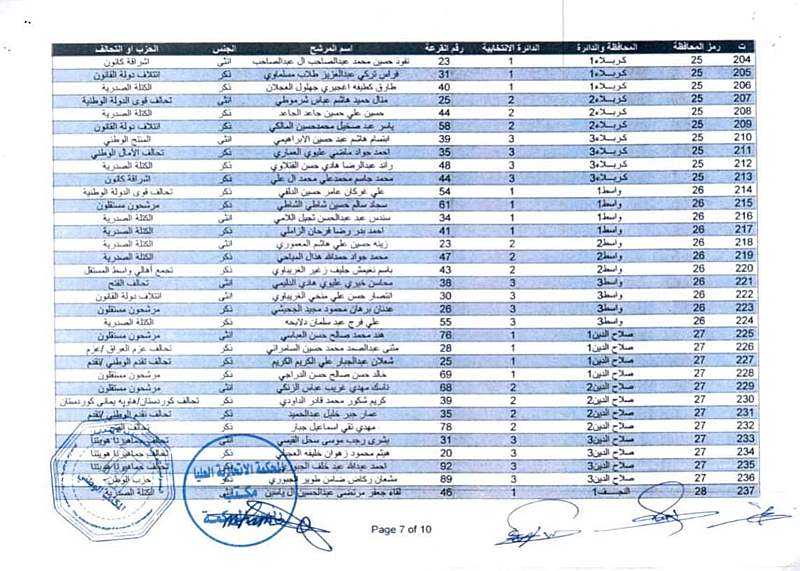 ت رمز المحافظة المحافظة والدائرة الدائرة الانتخابية رقم القرعة اسم المرشح الجنس الحزب او التحالف
204 25 كربلاء1 1 23 نفوذ حسين محمد عبدالصاحب ال عبدالصاحب انثى اشراقة كانون
205 25 كربلاء1 1 31 فراس تركي عبدالعزيز طلاب مسلماوي ذكر ائتلاف دولة القانون
206 25 كربلاء1 1 40 طارق كطيفه اغجيري جهلول العجلان ذكر الكتلة الصدرية
207 25 كربلاء2 2 25 منال حميد هاشم عباس شرموطي انثى تحالف قوى الدولة الوطنية
208 25 كربلاء2 2 44 حسين علي حسين جاعد الجاعد ذكر الكتلة الصدرية
209 25 كربلاء2 2 58 ياسر عبد صخيل محمدحسين المالكي ذكر ائتلاف دولة القانون
210 25 كربلاء3 3 39 ابتسام هاشم عبد حسين الابراهيمي انثى المنتج الوطني
211 25 كربلاء3 3 35 احمد جواد ماضي عليوي العماري ذكر تحالف الأمال الوطني
212 25 كربلاء3 3 48 رائد عبدالرضا هادي حسن الفتلاوي ذكر الكتلة الصدرية
213 25 كربلاء3 3 44 محمد جاسم محمدعلي محمد ال علي ذكر اشراقة كانون
214 26 واسط1 1 54 علي غركان عامر حسين الدلفي ذكر تحالف قوى الدولة الوطنية
215 26 واسط1 1 61 سجاد سالم حسين شاطي الشاطي ذكر مرشحون مستقلون
216 26 واسط1 1 34 سندس عبد عبدالحسن ثجيل اللامي انثى الكتلة الصدرية
217 26 واسط1 1 41 احمد بدر رضا فرحان الزاملي ذكر الكتلة الصدرية
218 26 واسط2 2 23 زينه حسين علي هاشم المعموري انثى الكتلة الصدرية
219 26 واسط2 2 47 محمد جواد حمدالله هذال المياحي ذكر الكتلة الصدرية
220 26 واسط2 2 43 باسم نغيمش جليف زغير الغريباوي ذكر تجمع أهالي واسط المستقل
221 26 واسط3 3 38 محاسن خيري عليوي هادي الدليمي انثى تحالف الفتح
222 26 واسط3 3 30 انتصار حسن علي منخي الغريباوي انثى ائتلاف دولة القانون
223 26 واسط3 3 26 عدنان برهان محمود مجيد الجحيشي ذكر مرشحون مستقلون
224 26 واسط3 3 55 علي فرج عبد سلمان ذكر الكتلة الصدرية
225 27 صلاح الدين1 1 76 هند محمد صالح حسن العباسي انثى مرشحون مستقلون
226 27 صلاح الدين1 1 28 مثنى عبدالصمد محمد حسين السامرائي ذكر تحالف عزم العراق /عزم
227 27 صلاح الدين1 1 25 شعلان عبدالجبار علي الكريم الكريم ذكر تحالف تقدم الوطني /تقدم
228 27 صلاح الدين1 1 69 خالد حسن صالح حسن الدراجي ذكر مرشحون مستقلون
229 27 صلاح الدين2 2 68 ناسك مهدي غريب عباس الزنكي انثى مرشحون مستقلون
230 27 صلاح الدين2 2 39 كريم شكور محمد قادر الداودي ذكر تحالف كوردستان/هاوپه يمانى كوردستان
231 27 صلاح الدين2 2 35 عمار جبر خليل عبدالحميد ذكر تحالف تقدم الوطني /تقدم
232 27 صلاح الدين2 2 78 مهدي تقي اسماعيل جبار ذكر تحالف الفتح
233 27 صلاح الدين3 3 31 بشرى رجب موسى سحل القيسي انثى تحالف جماهيرنا هويتنا
234 27 صلاح الدين3 3 20 هيثم محمود زهوان خليفه ذكر تحالف جماهيرنا هويتنا
235 27 صلاح الدين3 3 92 احمد عبدالله عبد خلف الجبوري ذكر تحالف جماهيرنا هويتنا
236 27 صلاح الدين3 3 89 مشعان ركاض ضامن طوير الجبوري ذكر حزب الوطن
237 28 النجف1 1 46 لقاء جعفر مرتضى عبدالحسين ال ياسين انثى الكتلة الصدرية
المحكمة الاتحادية العليا
مكتب
Page 7 of 10